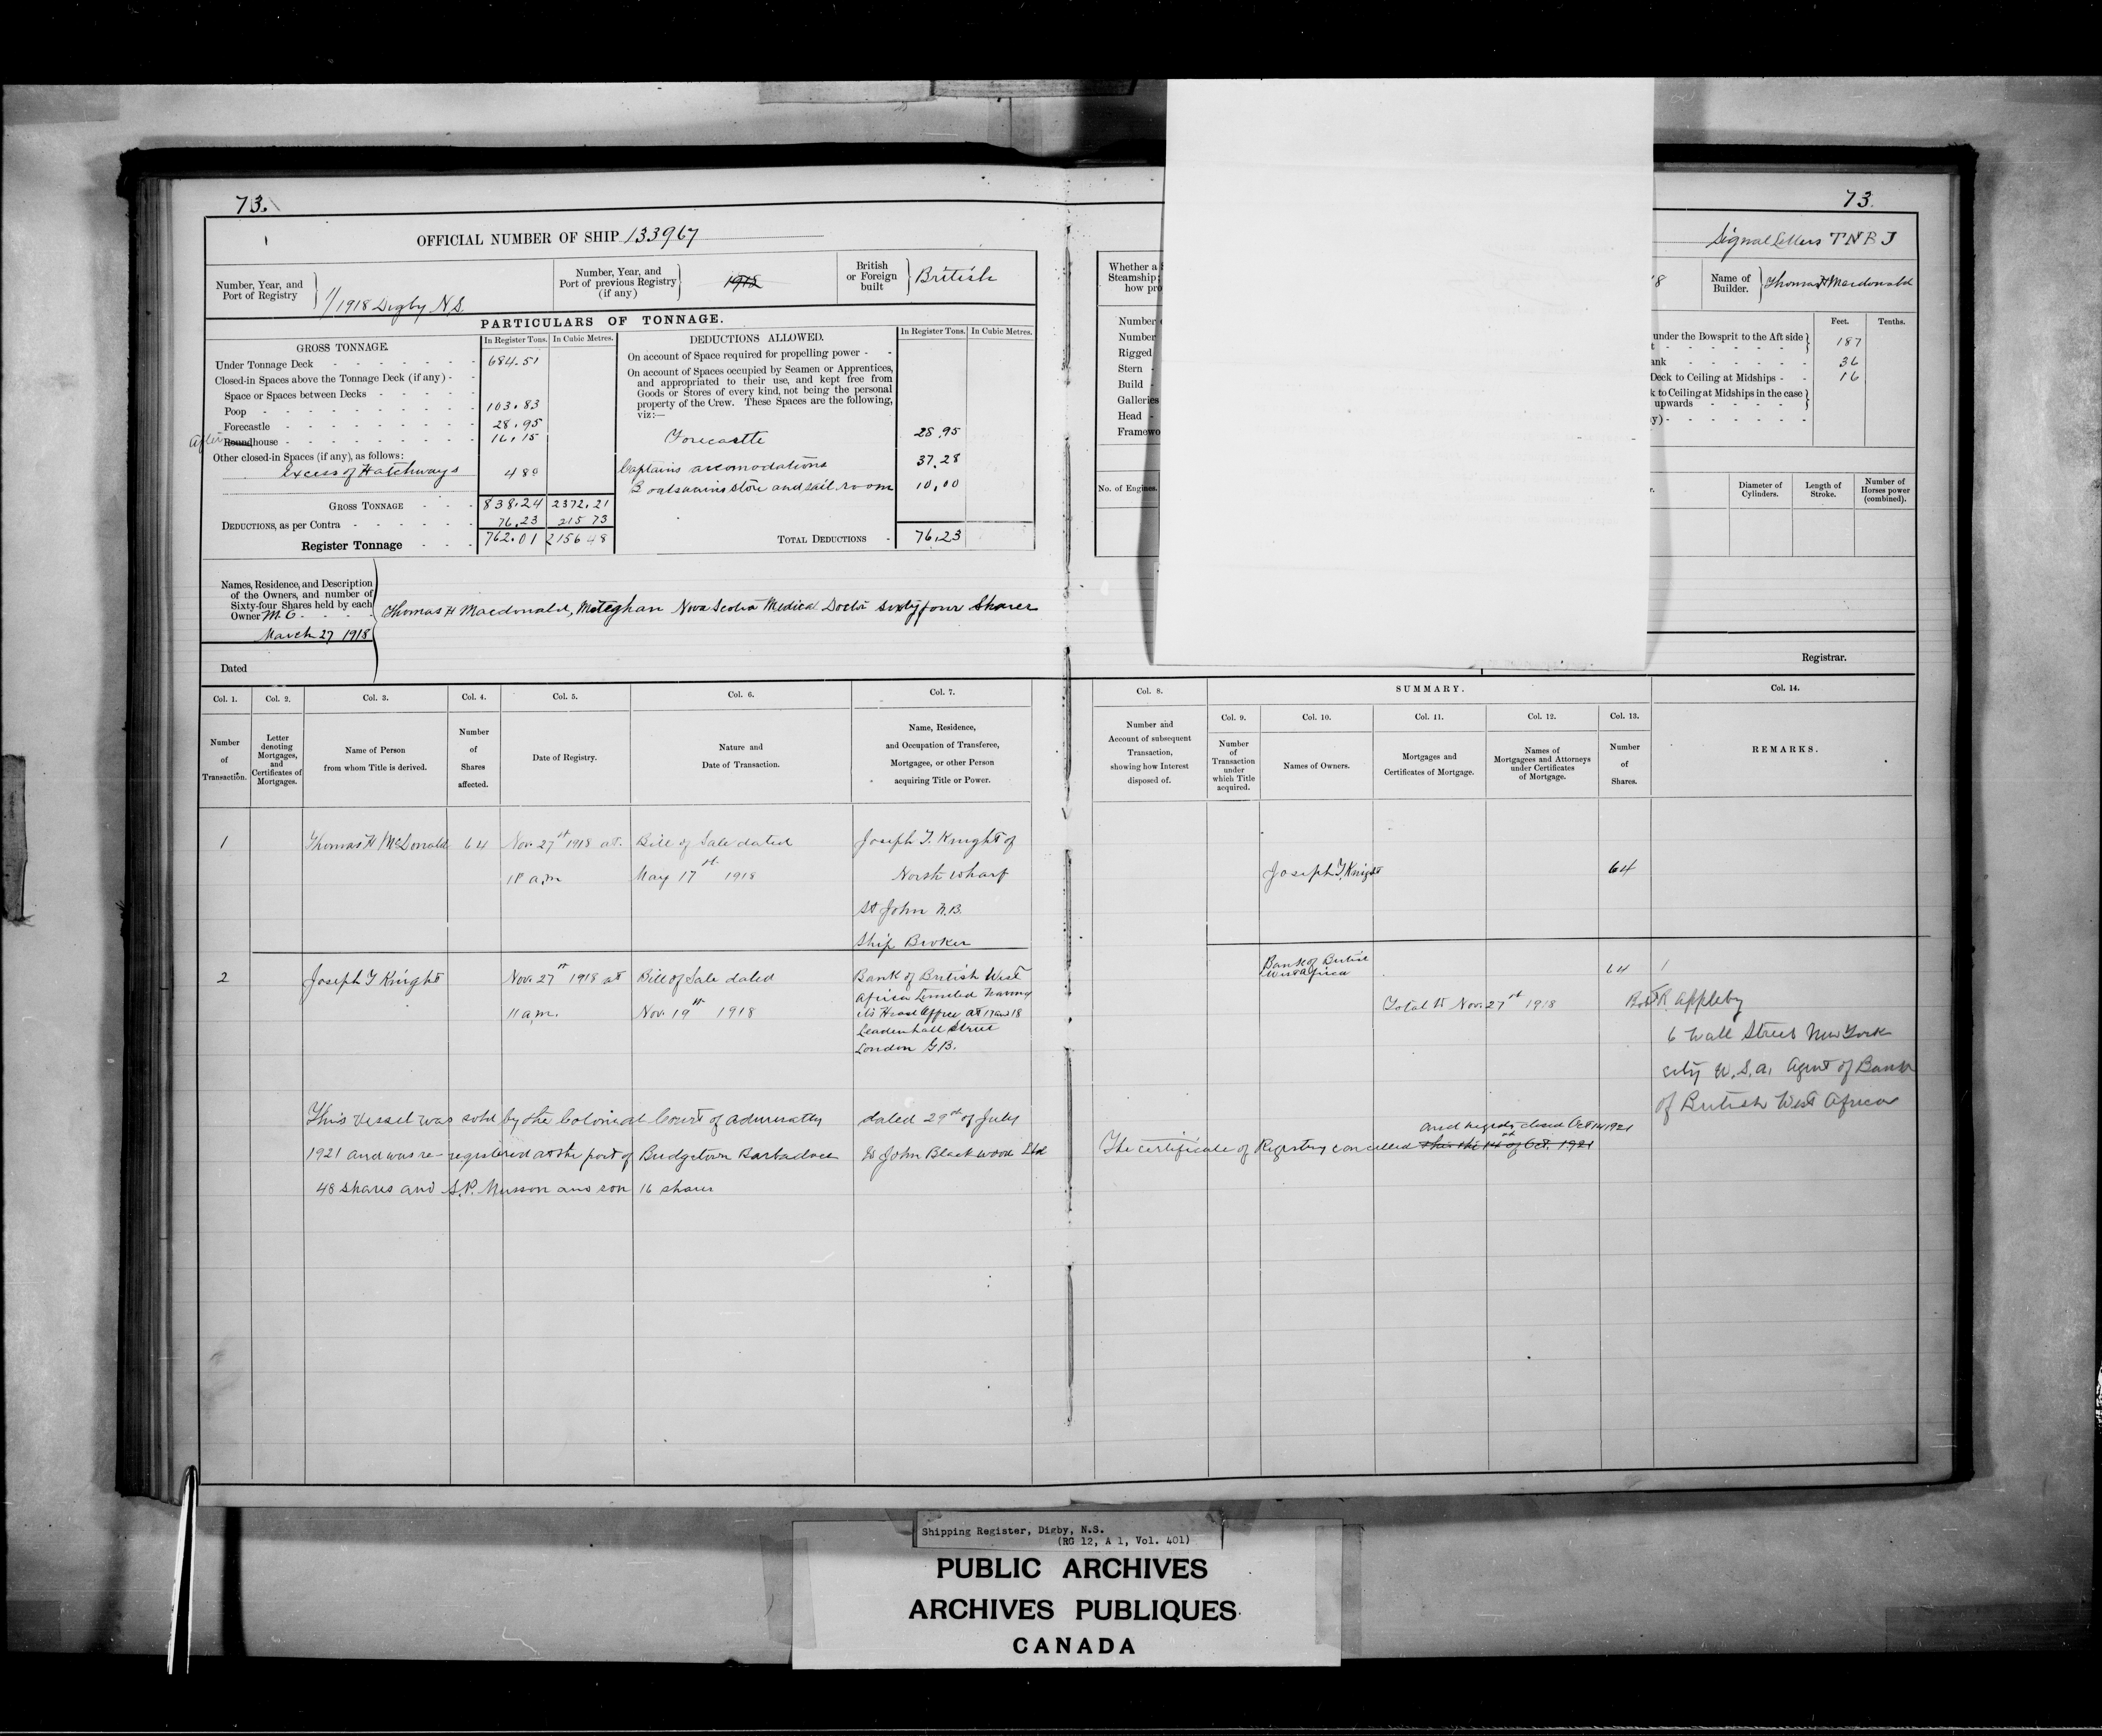 73.
73.
OFFICIAL NUMBER OF SHIP 133967
Signal Letters TNBJ
Number, Year, and Port of Registry
1/1918 Digby N.S.
Number, Year, and Port of previous Registry (if any)
1918
British or Foreign built
British
PARTICULARS OF TONNAGE.
GROSS TONNAGE.
In Register Tons. In Cubic Metres.
Under Tonnage Deck 684.51
Closed-in Spaces above the Tonnage Deck (if any) -
Space or Spaces between Decks
Poop 103.83
Forecastle 28.95
After Roundhouse 16.15
Other closed-in Spaces (if any), as follows:
Excess of Hatchways 480
GROSS TONNAGE 838.24 2372.21
DEDUCTIONS, as per Contra 76.23 215 73
Register Tonnage 762.01 2156 48
DEDUCTIONS ALLOWED.
In Register Tons. In Cubic Metres.
On account of Space required for propelling power
On account of Spaces occupied by Seamen or Apprentices,
and appropriated to their use, and kept free from
Goods or Stores of every kind, not being the personal
property of the Crew. These Spaces are the following,
viz:—
Forecastle 28.95
Captains accomodations 37.28
Boatswains store and sail room 10.00
TOTAL DEDUCTIONS 76.23
Names, Residence, and Description
of the Owners, and number of
Sixty-four Shares held by each
Owner M.C.
March 27 1918
Thomas H Macdonald, Meteghan Nova Scotia Medical Doctor sixty four Shares
Dated
Whether a
Steamship
how pro
Number
Number
Rigged
Stern
Build
Galleries
Head
Framewo
No. of Engines.
8
Name of Builder.
Thomas H Macdonald
Feet. Tenths.
under the Bowsprit to the Aft side
t 187
ank 36
Deck to Ceiling at Midships 16
k to Ceiling at Midships in the case
upwards
y)
r.
Diameter of Cylinders.
Length of Stroke.
Number of Horses power (combined).
Registrar.
Col. 1. Col. 2. Col. 3. Col. 4. Col. 5. Col. 6. Col. 7.
Number of Transaction.
Letter denoting Mortgages, and Certificates of Mortgages.
Name of Person from whom Title is derived.
Number of Shares affected.
Date of Registry.
Nature and Date of Transaction.
Name, Residence, and Occupation of Transferee, Mortgagee, or other Person acquiring Title or Power.
Col. 8.
SUMMARY.
Col. 14.
Col. 9. Col. 10. Col. 11. Col. 12. Col. 13.
Number and Account of subsequent Transaction, showing how Interest disposed of.
Number of Transaction under which Title acquired.
Names of Owners.
Mortgages and Certificates of Mortgage.
Names of Mortgagees and Attorneys under Certificates of Mortgage.
Number of Shares.
REMARKS.
1 Thomas H McDonald 64 Nov. 27st 1918 at Bill of Sale dated Joseph T. Knight of
a.m May 17st 1918 North Wharf
St John N.B.
Ship Broker
Joseph T. Knight 64
2 Joseph T Knight Nov. 27st 1918 at Bill of Sale dated Bank of British West
11 a.m. Nov. 19st 1918 Africa Limited having
its Head Office at 17 and 18
Leadenhall Street
London G.B.
Bank of British
West Africa 64
Total 15 Nov. 27st 1918
R Appleby
6 Wall Street New York
city U.S.A. Agent of Bank
of British West Africa
This Vessel was sold by the Colonial Court of Admiralty dated 29st of July
1921 and was re-registered at the port of Bridgetown Barbadoes to John Blackwood Ltd
48 shares and S.P. Musson and son 16 shares
and registry closed Oct 14 1921
The certificate of Registry cancelled this the 14st of Oct. 1921
Shipping Register, Digby, N.S.
(RG 12, A 1, Vol. 401)
PUBLIC ARCHIVES
ARCHIVES PUBLIQUES
CANADA